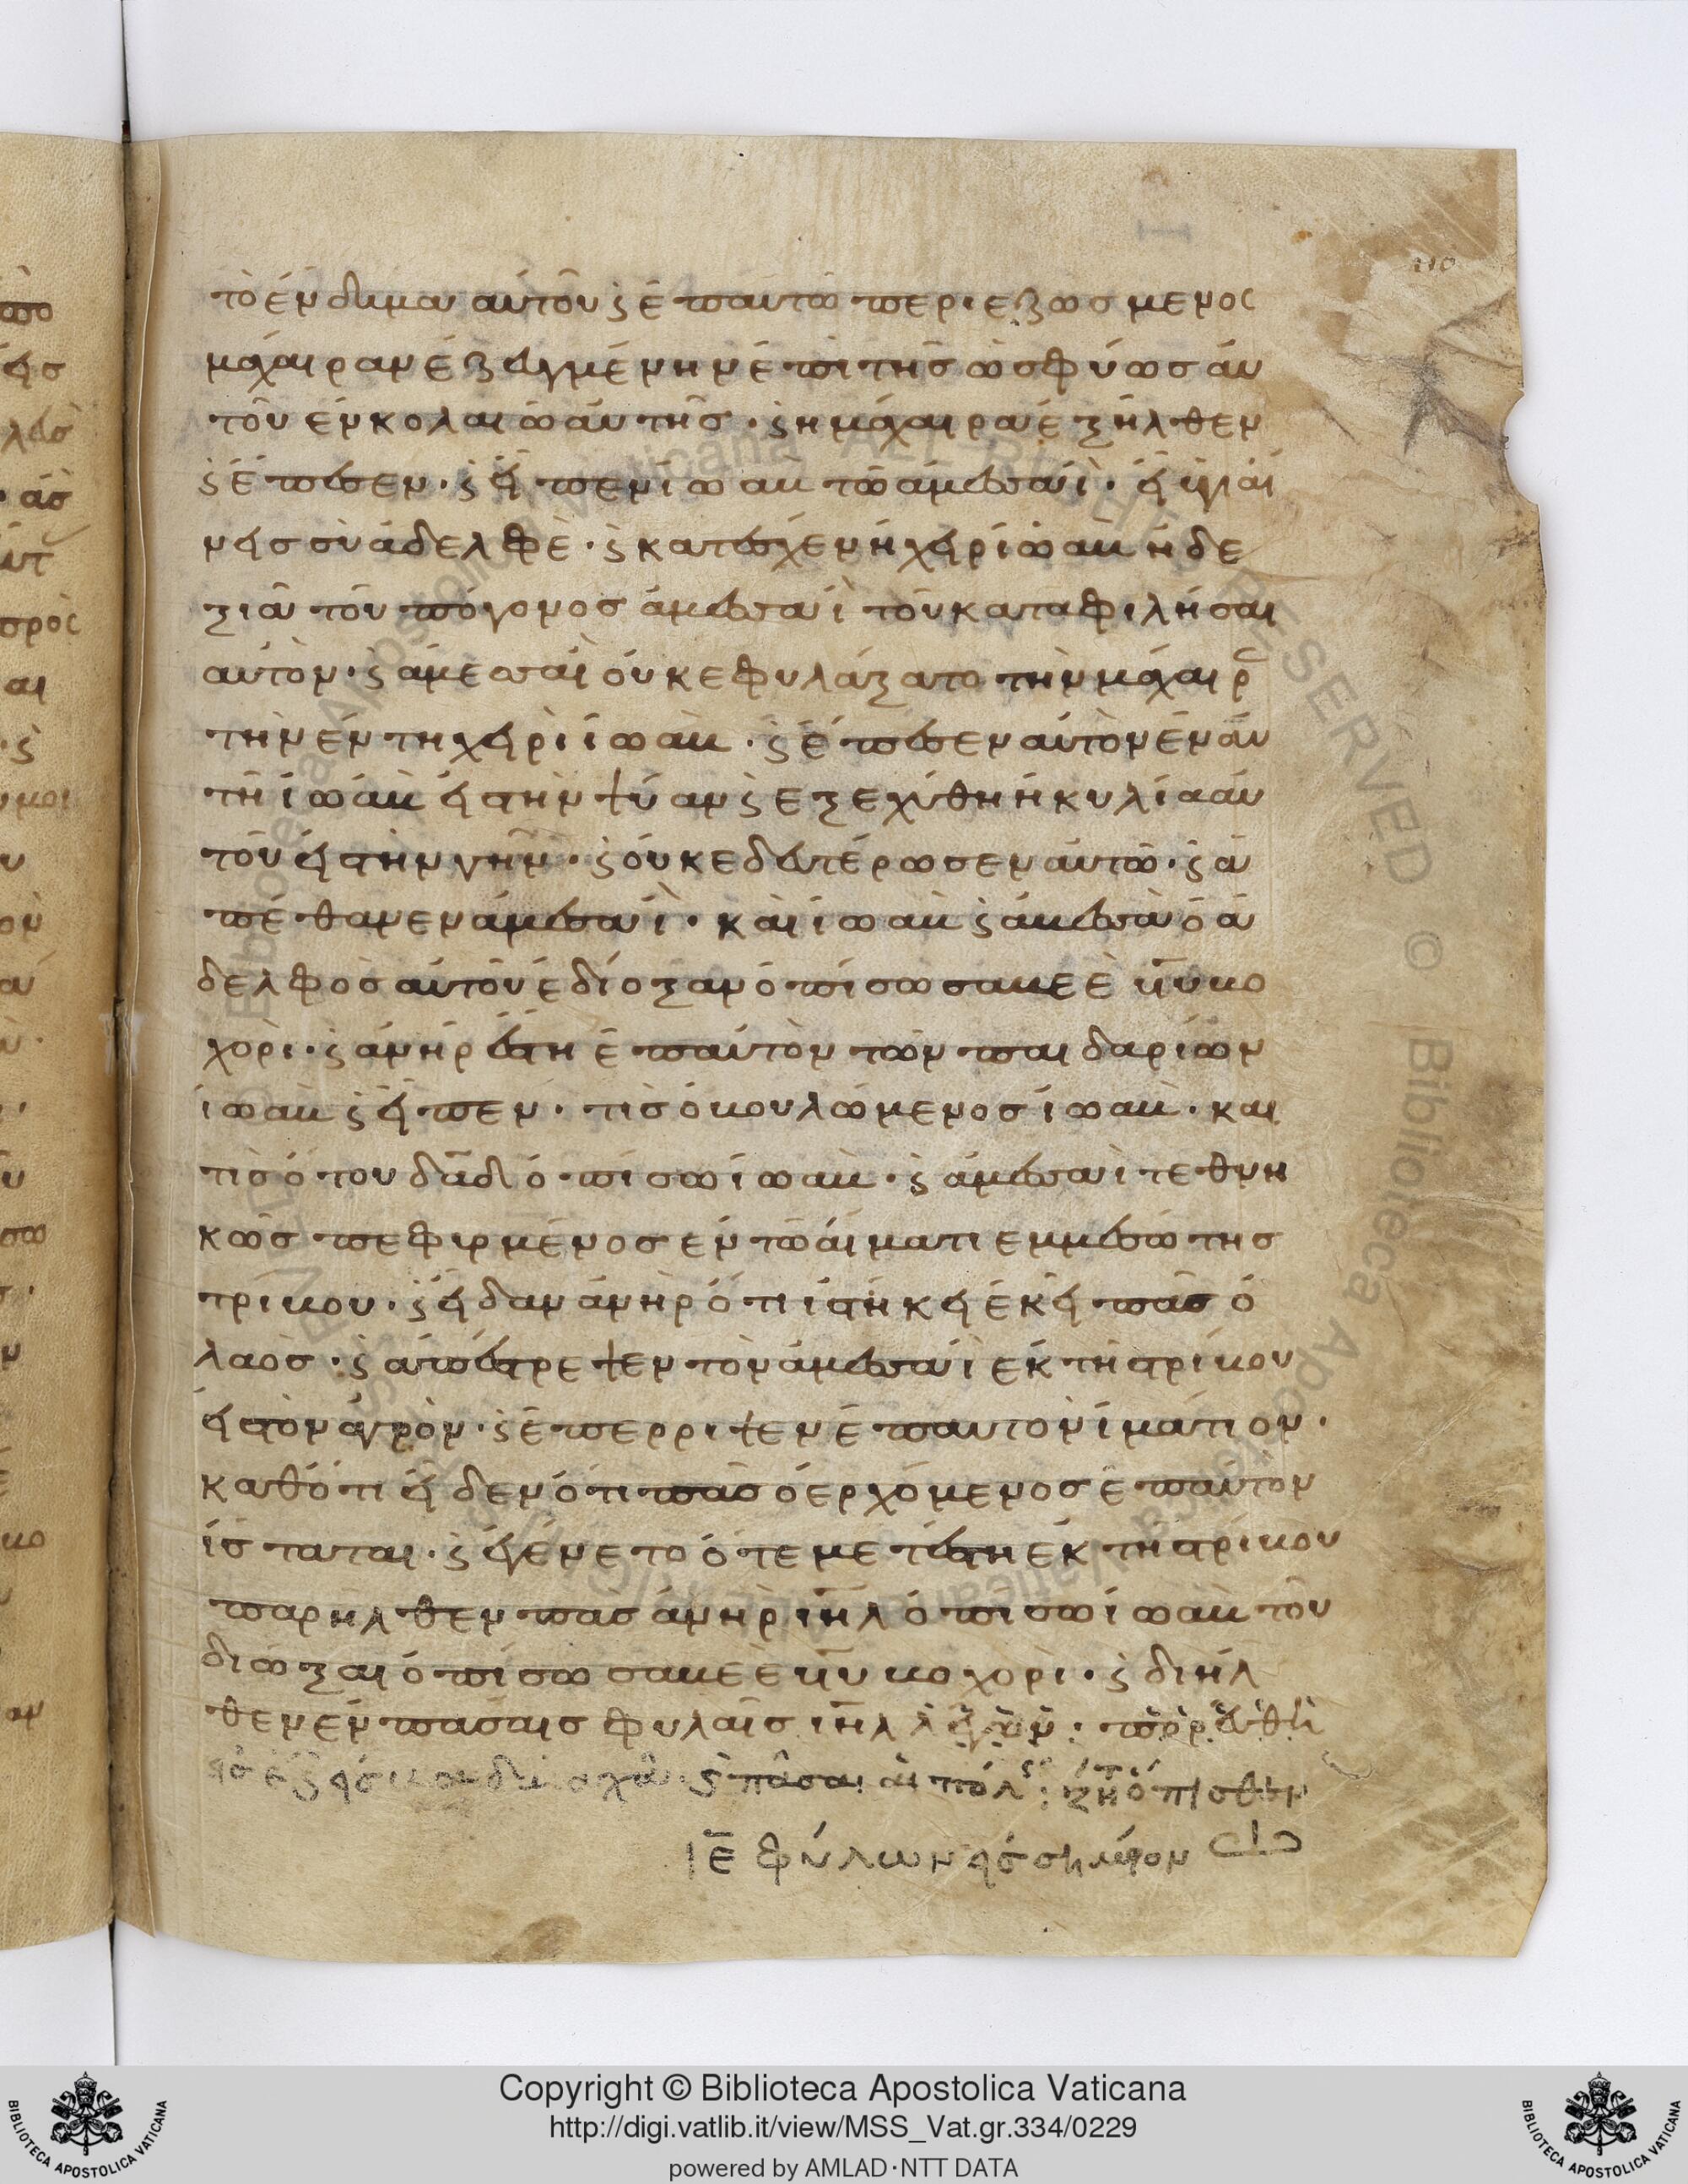 110
τὸ ἔνδυμα αὐτοῦ ϛ ἐπαυτῶ περιεζωσμενος
μάχαιραν ἐζευγμένην ἐπι τῆσ ὠσφύωσ αὐ
τοῦ εν κολαιῶ αὐτῆσ · ϛ η μάχαιρα ἐξῆλθεν
ϛ ἔπεσεν · ϛ εἶπεν ϊωαὶ τῶ ἀμεσσαὶ · εἰ ὑγιαί
νεισ σὺ ἀδελφὲ · ϛ κατέσχεν ἡ χεὶρ ϊωαβ ἡ δε
ξιᾶ τοῦ πόγονοσ ἀμεσσαῒ τοῦ καταφιλήσαι
αὐτὸν · ϛ ἀμεσσαῒ ούκ εφυλάξατο τὴν μάχαιρ
τὴν ἐν τη χειρὶ ϊωαβ · ϛ ἔπαισεν αὐτὸν ἐν αὐ
τῆ ϊωάβ εισ τὴν ψύαν ϛ εξεχύθη ἡ κυλία αὐ
τοῦ εἰσ τὴν γῆν · ϛ ούκ εδευτέρωσεν αὐτῶ · ϛ ἀ
πέθανεν ἀμεσσαῒ · καὶ ϊωαβ ϛ ἀβεσσὰ ὁ ἀ
δελφὸσ αὐτοῦ ἐδίοξαν ὀπίσω σαβεὲ υἱοῦ βο
χορὶ · ϛ ἀνὴρ ἔστη ἐπαυτὸν τῶν παιδαρίων
ϊωαβ ϛ εἶπεν · τὶσ ὁ βουλώμενοσ ϊωαβ · και
τὶσ ὁ του δᾱδ ὀπίσω ϊωαβ · ϛ ἀμεσσαὶ τεθνη
κῶσ πεφυρμένοσ εν τῶ αἵματι εμμέσω τησ
τρίβου · ϛ εἶδεν ἀνὴρ ὅτι ἱστήκει ἐκεῖ πᾶσ ὁ
λαὸσ · ϛ ἀπέστρεψεν τὸν ἀμεσσαῒ ἐκ τῆσ τρίβου
εἰσ τὸν ἀγρὸν · ϛ ἐπερριψεν ἐπαυτον ἱμάτιον ·
καθότι εἶδεν ὅτι πᾶσ ὁ ερχόμενοσ ἐπαύτον
ἵσταται · ϛ ἐγένετο ὅτε μετέστη ἐκ τῆσ τρίβου
παρῆλθεν πᾶσ ἀνὴρ ιῆλ ὀπισω ϊωαβ τοῦ
διώξαι ὀπίσω σαβεὲ υἱοῦ βοχορὶ · ϛ διῆλ
θεν ἐν πάσαισ φυλαῖσ ιῆλ
ϛ πᾶσαι αἱ πόλ : ζη ὄπισθεν
ιε φύλων εἰσ σημεῖον
Copyright © Biblioteca Apostolica Vaticana
http://digi.vatlib.it/view/MSS_Vat.gr.334/0229
powered by AMLAD·NTT DATA